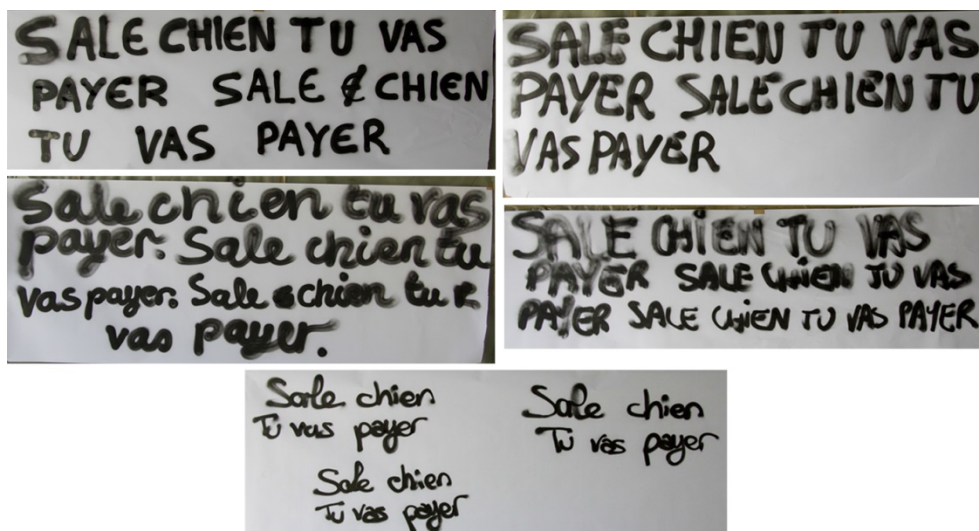 SALE CHIEN TU VAS
PAYER SALE & CHIEN
TU VAS PAYER
SALE CHIEN TU VAS
PAYER SALE CHIEN TU
VAS PAYER
Sale chien tu vas
payer. Sale chien tu
vas payer. Sale chien tu
vas payer.
SALE CHIEN TU VAS
PAYER SALE CHIEN TU VAS
PAYER SALE CHIEN TU VAS PAYER
Sale chien
Tu vas payer
Sale chien
Tu vas payer
Sale chien
Tu vas payer